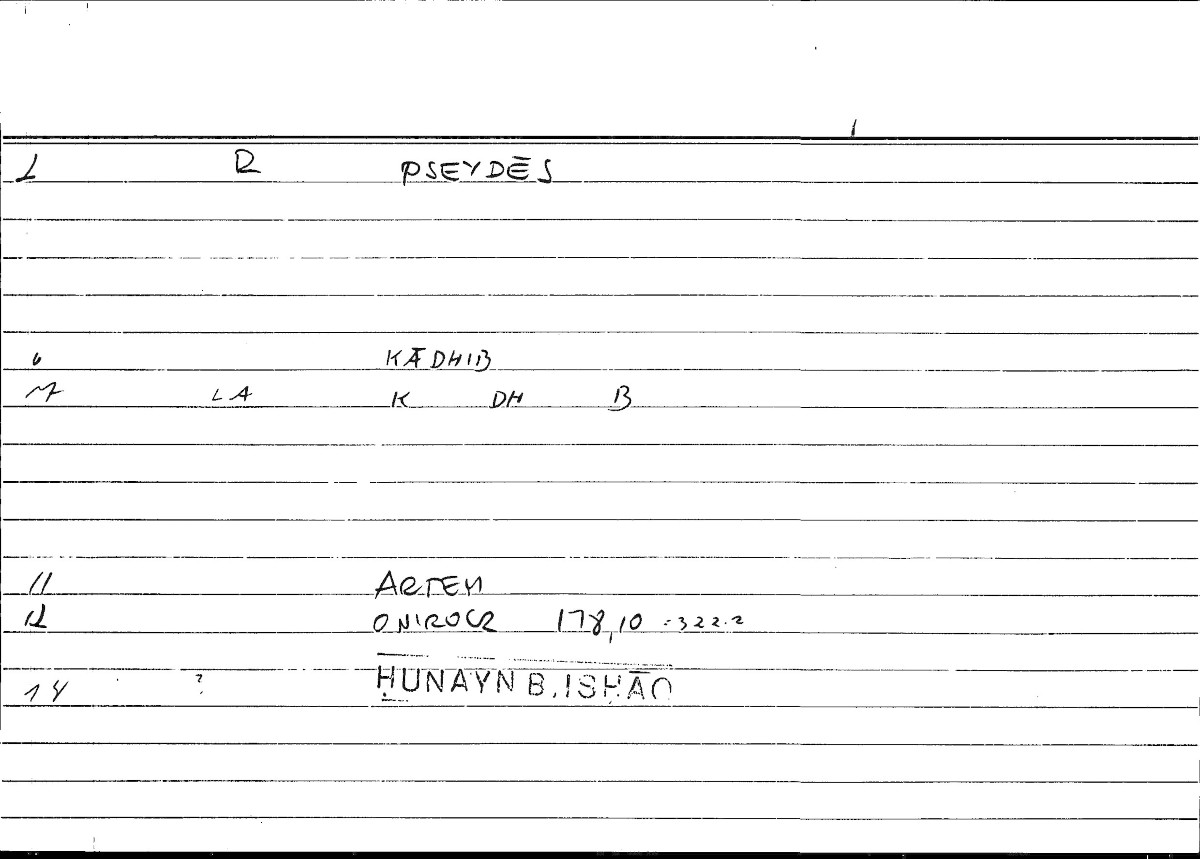 1 R PSEYDĒS
6 KĀDHIB
7 LA K DH B
11 ARTEM
12 ONIROCR 178,10 = 322.2
14 ? ḤUNAYN B. ISḤĀQ